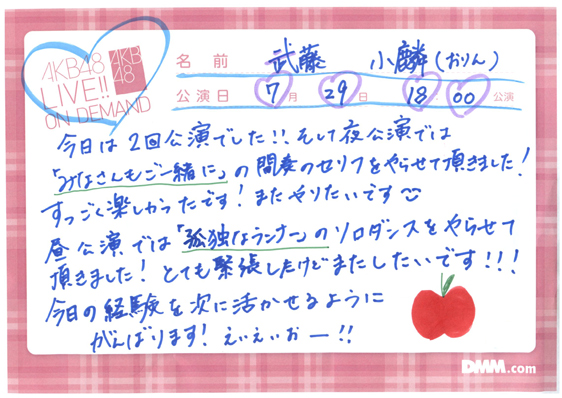 AKB48
LIVE!!
ON DEMAND
AKB
48
名前 武藤 小麟(おりん)
公演日 7月 29日 18:00公演
今日は2回公演でした!!そして夜公演では
「みなさんもご一緒に」の間奏のセリフをやらせて頂きました!
すっごく楽しかったです!またやりたいです
昼公演では「孤独なランナー」のソロダンスをやらせて
頂きました!とても緊張したけどまたしたいです!!!
今日の経験を次に活かせるように
がんばります!えいえいおー!!
DMM.com